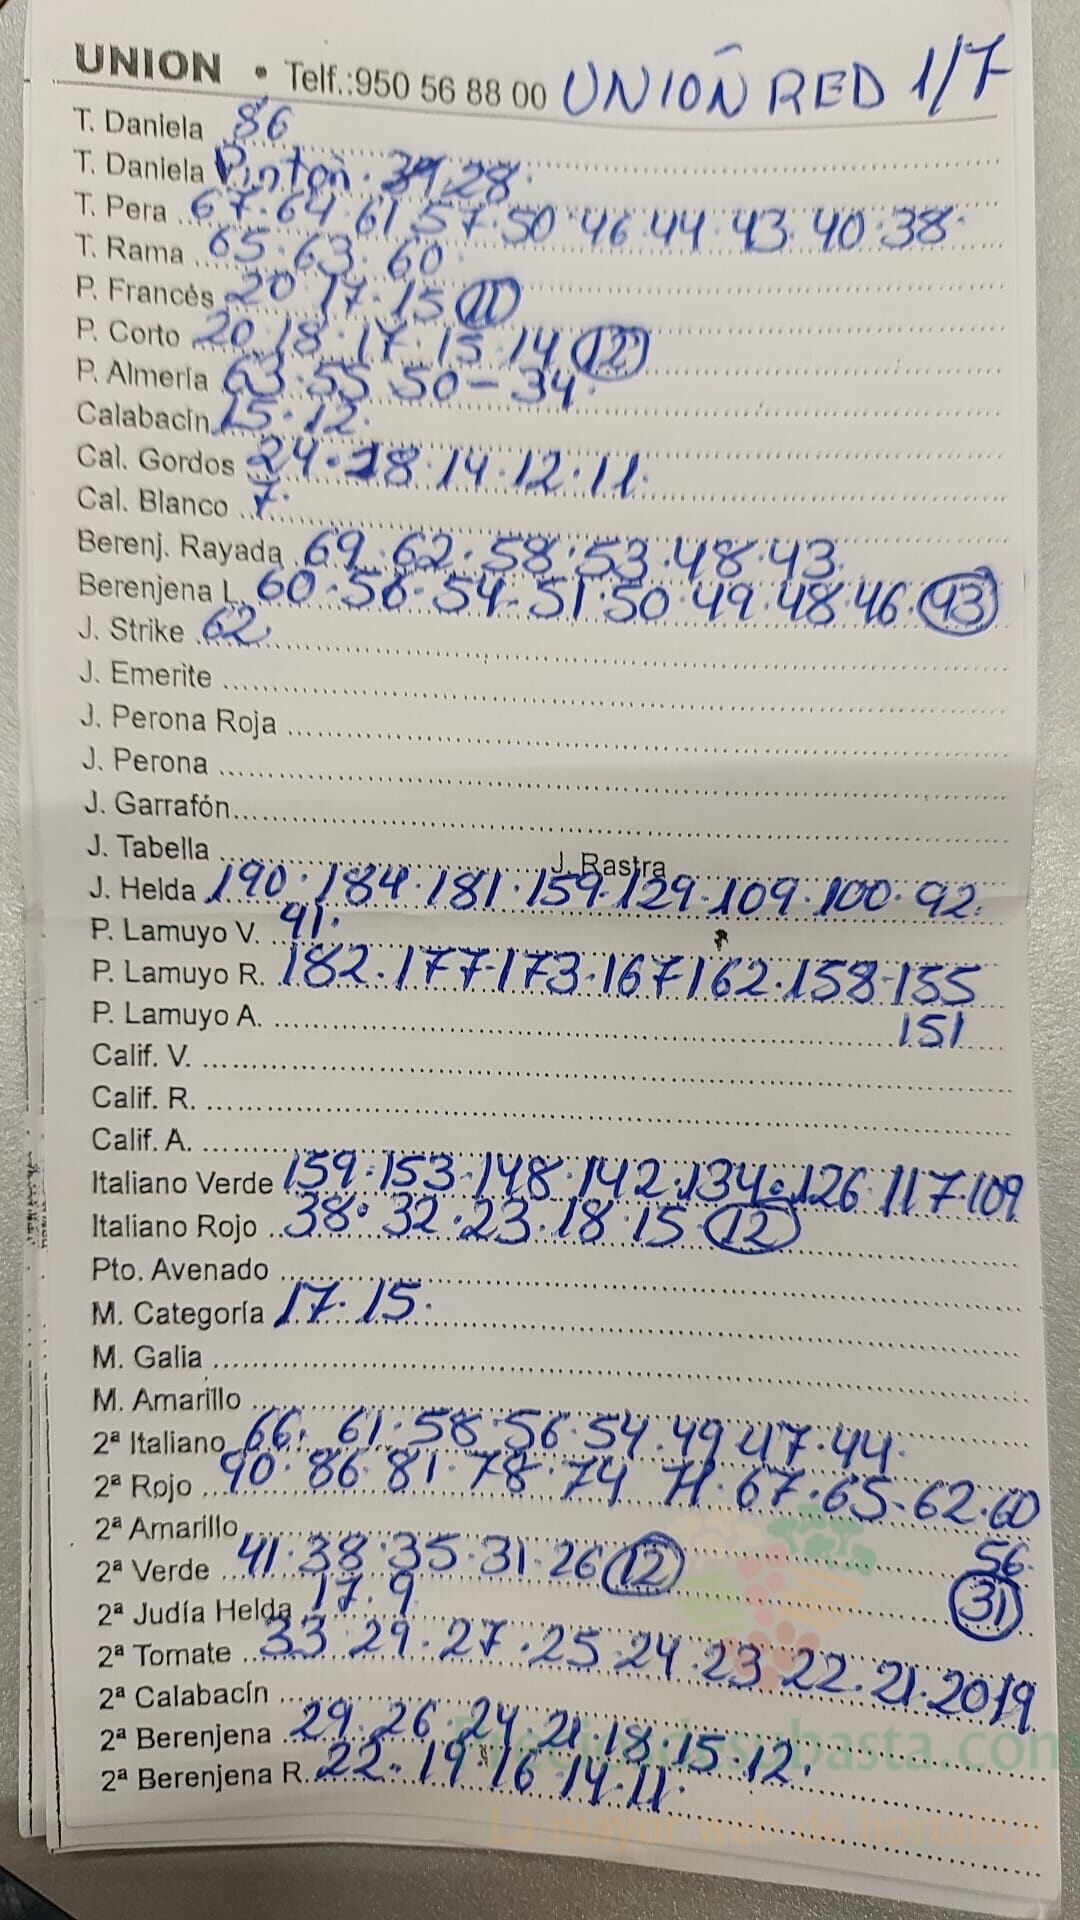 UNION • Telf.:950 56 88 00 UNION RED 1/7
T. Daniela 86
T. Daniela Pinton · 39.28.
T. Pera 67·64·61·57·50·46·44·43·40·38·
T. Rama 65·63·60
P. Francés 20·17·15 (11)
P. Corto 20·18·17·15·14 (12)
P. Almería 63·55·50-34·
Calabacín 15·12·
Cal. Gordos 24·18·14·12·11·
Cal. Blanco 7·
Berenj. Rayada 69·62·58·53·48·43·
Berenjena L. 60·56·54·51·50·49·48·46·(43)
J. Strike 62·
J. Emerite
J. Perona Roja
J. Perona
J. Garrafón
J. Tabella J. Rastra
J. Helda 190·184·181·159·129·109·100·92·
P. Lamuyo V. 91·
P. Lamuyo R. 182·177·173·167 162·158·155
P. Lamuyo A. 151
Calif. V.
Calif. R.
Calif. A.
Italiano Verde 159·153·148·142·134·126·117·109
Italiano Rojo 38·32·23·18·15·(12)
Pto. Avenado
M. Categoría 17·15·
M. Galia
M. Amarillo
2ª Italiano 66·61·58·56·54·49·47·44·
2ª Rojo 90·86·81·78·74 71·67·65·62·60
2ª Amarillo 56·
2ª Verde 41·38·35·31·26 (12) (31)
2ª Judía Helda 17·9
2ª Tomate 33·29·27·25·24·23·22·21·20 19
2ª Calabacín
2ª Berenjena 29·26·24·21·18·15·12·
2ª Berenjena R. 22·19·16·14·11·
Preciosdesubasta.com
La mayor web de hortalizas